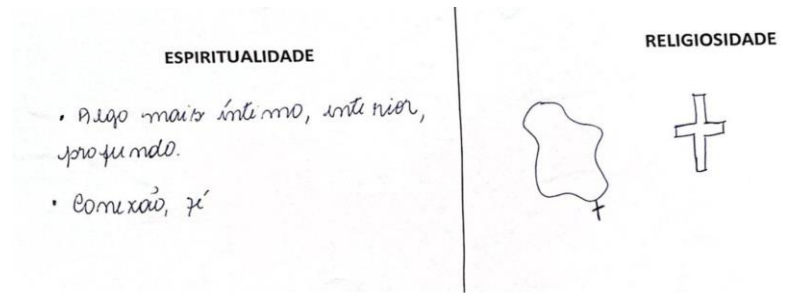 ESPIRITUALIDADE
• Algo mais íntimo, interior,
profundo.
• Conexão, fé
RELIGIOSIDADE